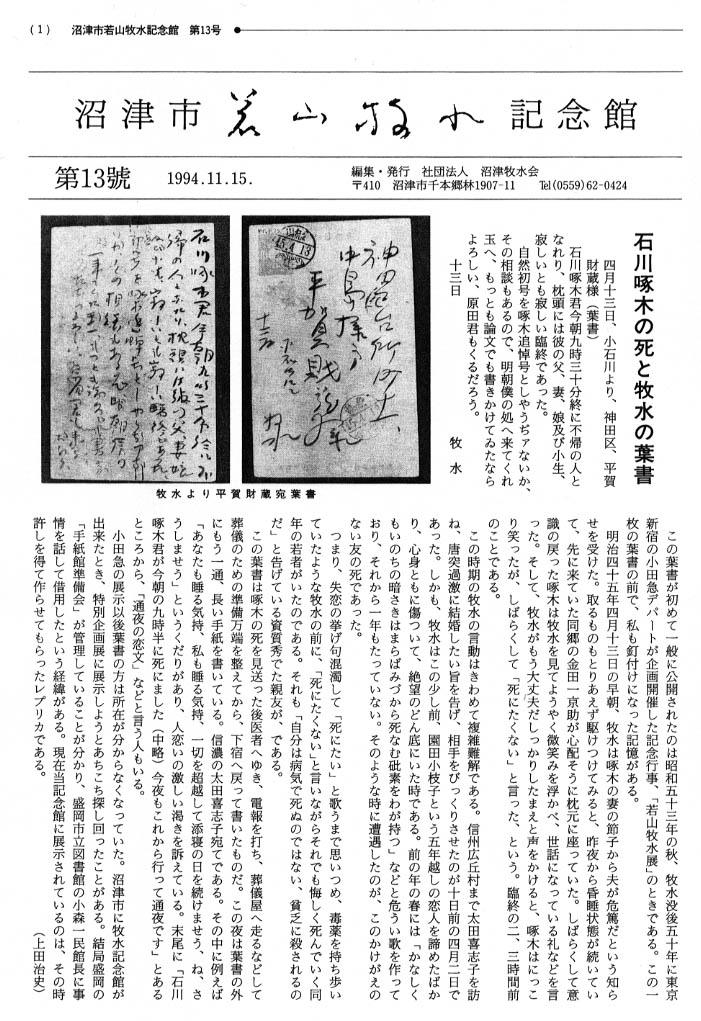 (1) 沼津市若山牧水記念館 第13号
沼津市 若山牧水 記念館
第13號 1994.11.15.
編集・発行 社団法人 沼津牧水会
〒410 沼津市千本郷林1907-11 Tel(0559)62-0424
石川啄木の死と牧水の葉書
四月十三日、小石川より、神田区、平賀
財蔵様(葉書)
石川啄木君今朝九時三十分終に不帰の人と
なれり、枕頭には彼の父、妻、娘及び小生、
寂しいとも寂しい臨終であった。
自然初号を啄木追悼号としやうぢァないか、
その相談もあるので、明朝僕の処へ来てくれ
玉へ、もっとも論文でも書きかけてゐたなら
よろしい、原田君もくるだろう。
十三日
牧水
牧水より平賀財蔵宛葉書
この葉書が初めて一般に公開されたのは昭和五十三年の秋、牧水没後五十年に東京
新宿の小田急デパートが企画開催した記念行事、「若山牧水展」のときである。この一
枚の葉書の前で、私も釘付けになった記憶がある。
明治四十五年四月十三日の早朝、牧水は啄木の妻の節子から夫が危篤だという知ら
せを受けた。取るものもとりあえず駆けつけてみると、昨夜から昏睡状態が続いてい
て、先に来ていた同郷の金田一京助が心配そうに枕元に座っていた。しばらくして意
識の戻った啄木は牧水を見てようやく微笑みを浮かべ、世話になっている礼などを言
った。そして、牧水がもう大丈夫だしっかりしたまえと声をかけると、啄木はにっこ
り笑ったが、しばらくして「死にたくない」と言った、という。臨終の二、三時間前
のことである。
この時期の牧水の言動はきわめて複雑難解である。信州広丘村まで太田喜志子を訪
ね、唐突過激に結婚したい旨を告げ、相手をびっくりさせたのが十日前の四月二日で
あった。しかも、牧水はこの少し前、園田小枝子という五年越しの恋人を諦めたばか
り、心身ともに傷ついて、絶望のどん底にいた時である。前の年の春には「かなしく
もいのちの暗さきはまらばみづから死なむ砒素をわが持つ」などと危うい歌を作って
おり、それから一年もたっていない。そのような時に遭遇したのが、このかけがえの
ない友の死であった。
つまり、失恋の挙げ句混濁して「死にたい」と歌うまで思いつめ、毒薬を持ち歩い
ていたような牧水の前に、「死にたくない」と言いながらそれでも悔しく死んでいく同
年の若者がいたのである。それも「自分は病気で死ぬのではない、貧乏に殺されるの
だ」と告げている資質秀でた親友が、である。
この葉書は啄木の死を見送った後医者へゆき、電報を打ち、葬儀屋へ走るなどして
葬儀のための準備万端を整えてから、下宿へ戻って書いたものだ。この夜は葉書の外
にもう一通、長い手紙を書いている。信濃の太田喜志子宛てである。その中に例えば
「あなたも睡る気持、私も睡る気持、一切を超越して添寝の日を続けませう、ね、さ
うしませう」というくだりがあり、人恋いの激しい渇きを訴えている。末尾に「石川
啄木君が今朝の九時半に死にました(中略)今夜もこれから行って通夜です」とある
ところから、「通夜の恋文」などと言う人もいる。
小田急の展示以後葉書の方は所在が分からなくなっていた。沼津市に牧水記念館が
出来たとき、特別企画展に展示しようとあちこち探し回ったことがある。結局盛岡の
「手紙館準備会」が管理していることが分かり、盛岡市立図書館の小森一民館長に事
情を話して借用したという経緯がある。現在当記念館に展示されているのは、その時
許しを得て作らせてもらったレプリカである。
(上田治史)